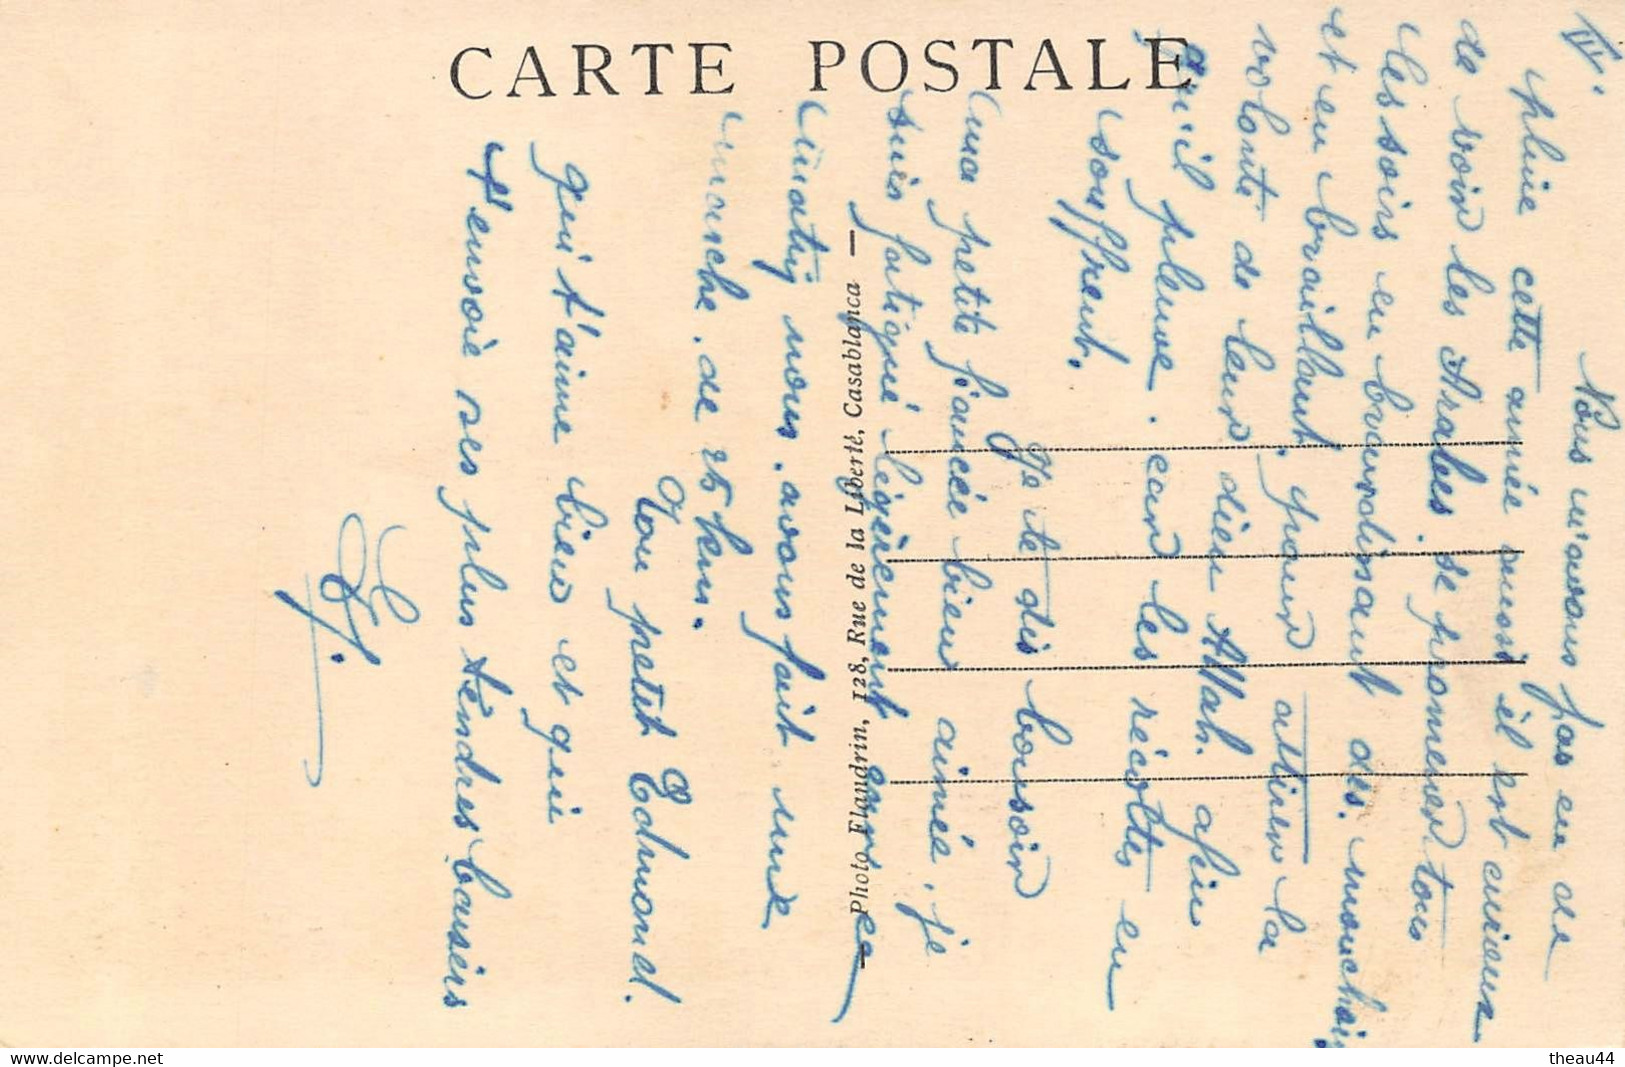 CARTE POSTALE
IV.
Nous n'avons pas eu de
pluie cette année aussi il est curieux
de voir les Arabes se promener tous
les soirs en brandissant des mouchoirs
et en braillant pour attirer la
volonté de leur dieu Allah. afin
qu'il pleuve. car les récoltes en
souffrent.
Je te dis bonsoir
ma petite fiancée bien aimée, je
suis fatigué légèrement car ce
matin nous avons fait une
marche de 25 km.
Ton petit Edmond.
qui t'aime bien et qui
t'envoie ses plus tendres baisers
Photo Flandrin, 128, Rue de la Liberté, Casablanca
delcampe.net
theau44